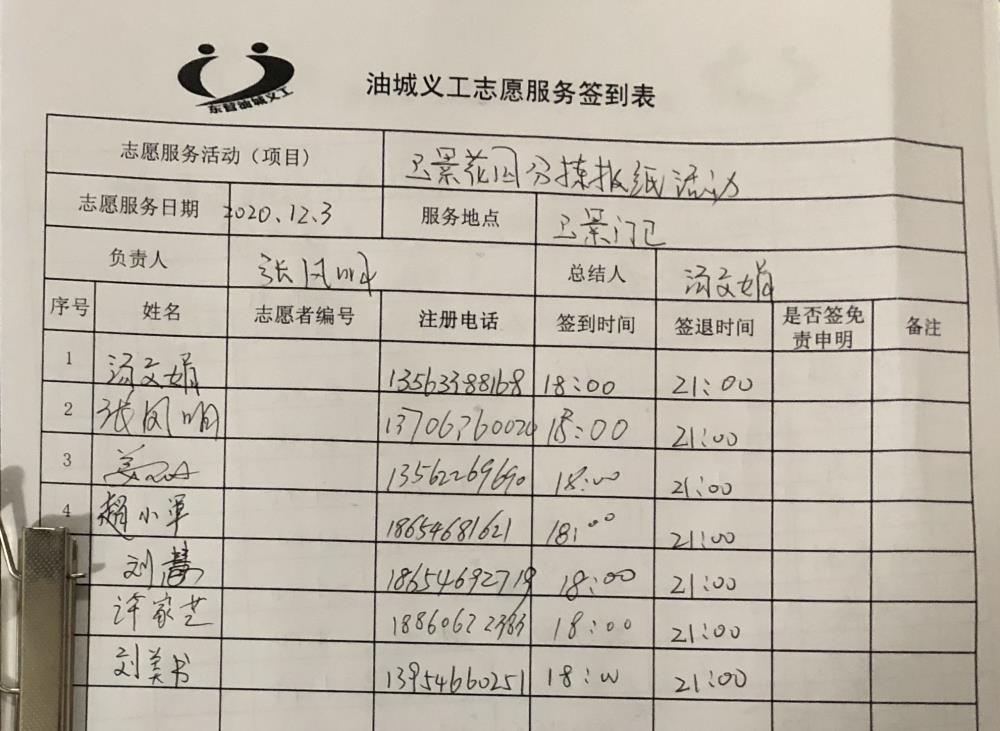 东营油城义工
油城义工志愿服务签到表
志愿服务活动（项目） 玉景花园分拣报纸活动
志愿服务日期 2020.12.3 服务地点 玉景门卫
负责人 张凤明 总结人 汤文娟
序号 姓名 志愿者编号 注册电话 签到时间 签退时间 是否签免责申明 备注
1 汤文娟 13563388168 18:00 21:00
2 张凤明 13706360020 18:00 21:00
3 13562269690 18:00 21:00
4 赵小军 18654681621 18:00 21:00
刘慧 18654692719 18:00 21:00
许家芝 18860622383 18:00 21:00
刘美书 13954660251 18:00 21:00